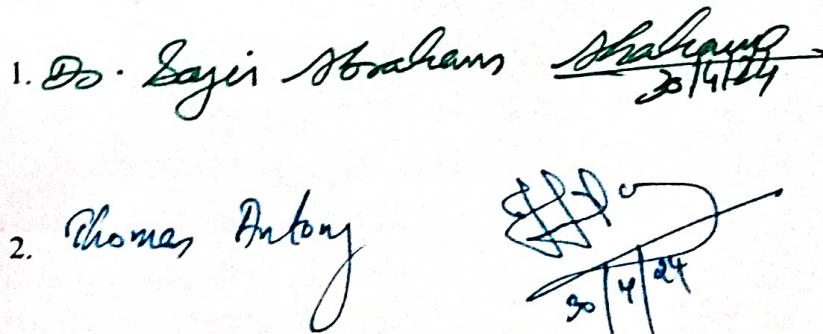 1. Dr. Sajin Abraham Abraham
30/4/24
2. Thomas Antony
30/4/24